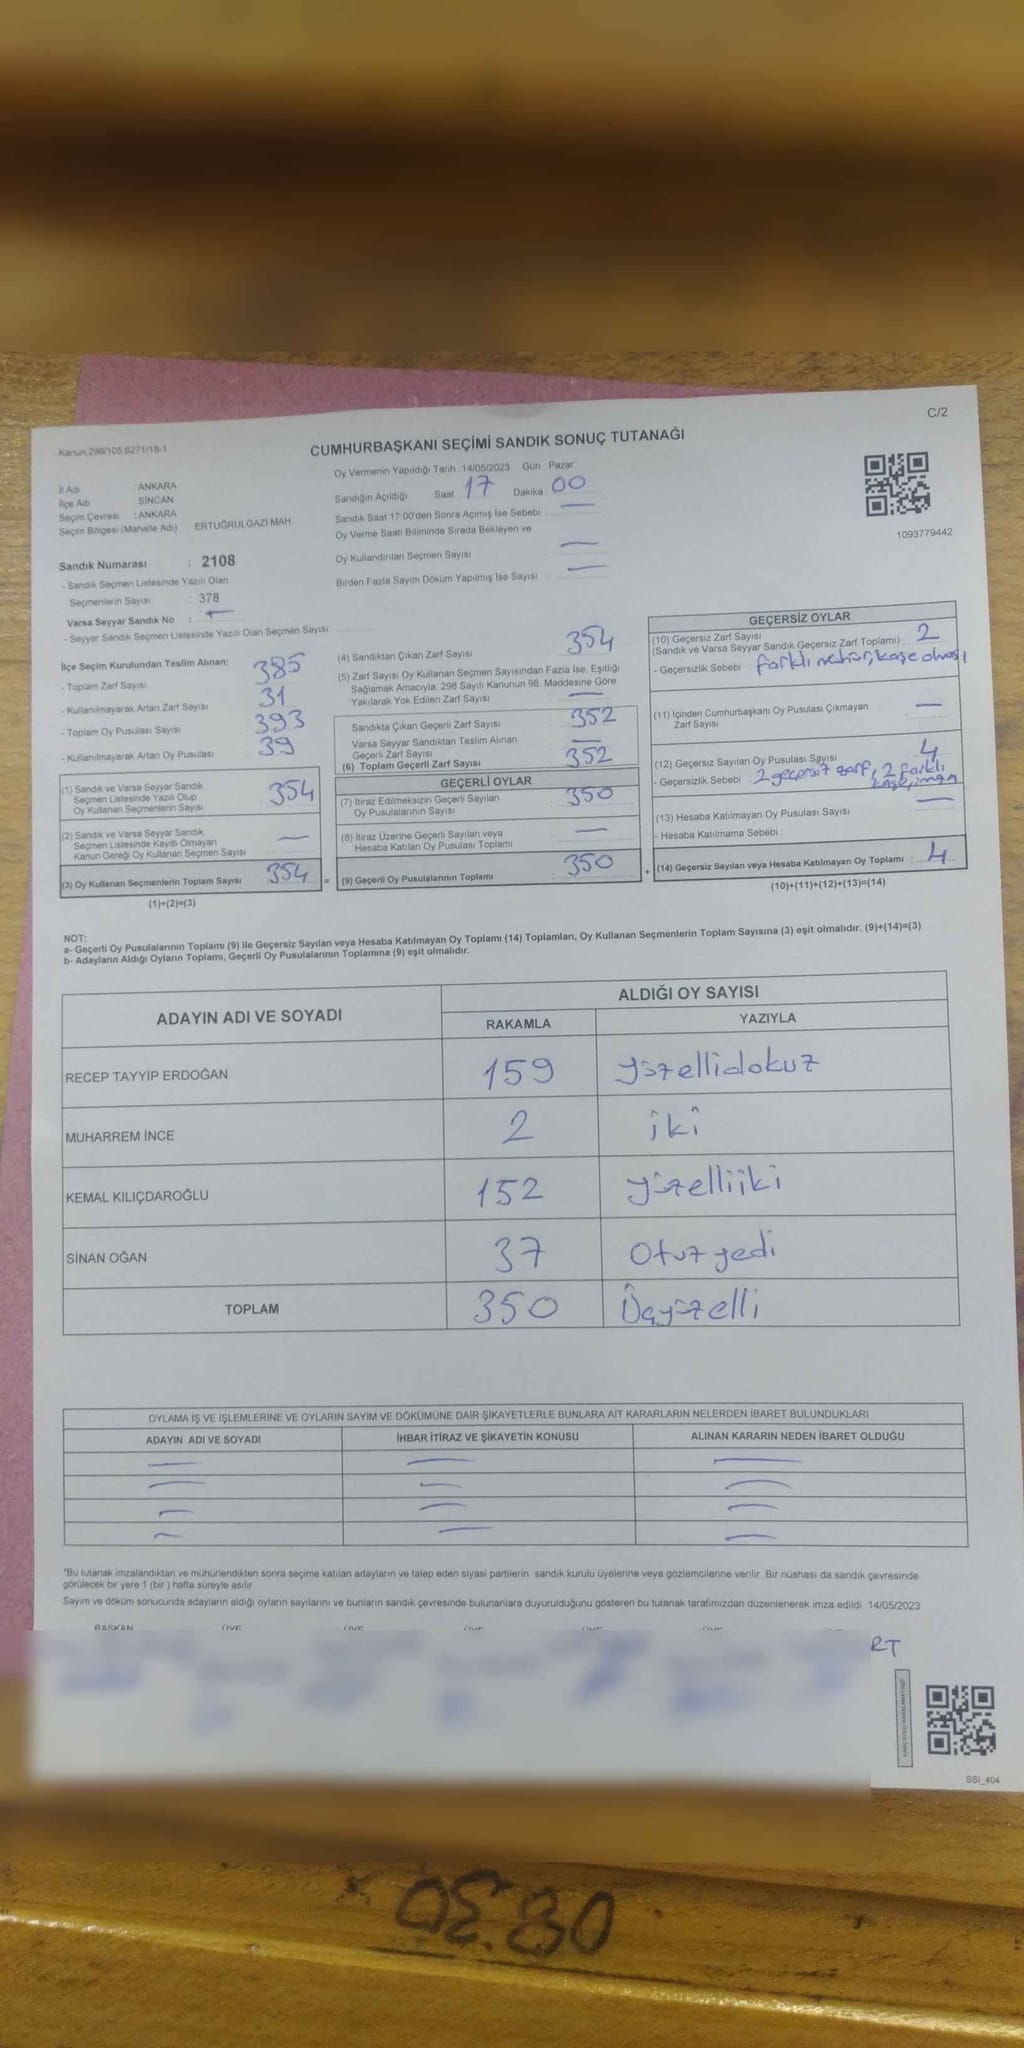 C/2
Kanun:298/105,6271/18-1
CUMHURBAŞKANI SEÇİMİ SANDIK SONUÇ TUTANAĞI
Oy Vermenin Yapıldığı Tarih : 14/05/2023 Gün : Pazar
İl Adı : ANKARA
İlçe Adı : SİNCAN
Seçim Çevresi : ANKARA
Seçim Bölgesi (Mahalle Adı) : ERTUĞRULGAZİ MAH.
Sandığın Açıldığı Saat 17 Dakika 00
Sandık Saat 17:00'den Sonra Açımış İse Sebebi : —
Oy Verme Saati Bitiminde Sırada Bekleyen ve
Oy Kullandırılan Seçmen Sayısı : —
Birden Fazla Sayım Döküm Yapılmış İse Sayısı : —
1093779442
Sandık Numarası : 2108
- Sandık Seçmen Listesinde Yazılı Olan
Seçmenlerin Sayısı : 378
Varsa Seyyar Sandık No : —
- Seyyar Sandık Seçmen Listesinde Yazılı Olan Seçmen Sayısı:
İlçe Seçim Kurulundan Teslim Alınan;
- Toplam Zarf Sayısı 385
- Kullanılmayarak Artan Zarf Sayısı 31
- Toplam Oy Pusulası Sayısı 393
- Kullanılmayarak Artan Oy Pusulası 39
(1) Sandık ve Varsa Seyyar Sandık
Seçmen Listesinde Yazılı Olup
Oy Kullanan Seçmenlerin Sayısı 354
(2) Sandık ve Varsa Seyyar Sandık
Seçmen Listesinde Kayıtlı Olmayan
Kanun Gereği Oy Kullanan Seçmen Sayısı —
(3) Oy Kullanan Seçmenlerin Toplam Sayısı 354 =
(1)+(2)=(3)
(4) Sandıktan Çıkan Zarf Sayısı 354
(5) Zarf Sayısı Oy Kullanan Seçmen Sayısından Fazla İse, Eşitliği
Sağlamak Amacıyla; 298 Sayılı Kanunun 98. Maddesine Göre
Yakılarak Yok Edilen Zarf Sayısı —
Sandıkta Çıkan Geçerli Zarf Sayısı 352
Varsa Seyyar Sandıktan Teslim Alınan
Geçerli Zarf Sayısı —
(6) Toplam Geçerli Zarf Sayısı 352
GEÇERLİ OYLAR
(7) İtiraz Edilmeksizin Geçerli Sayılan
Oy Pusulalarının Sayısı 350
(8) İtiraz Üzerine Geçerli Sayılan veya
Hesaba Katılan Oy Pusulası Toplamı —
(9) Geçerli Oy Pusulalarının Toplamı 350 +
GEÇERSİZ OYLAR
(10) Geçersiz Zarf Sayısı
(Sandık ve Varsa Seyyar Sandık Geçersiz Zarf Toplamı) : 2
- Geçersizlik Sebebi farklı mühür, kaşe olması
(11) İçinden Cumhurbaşkanı Oy Pusulası Çıkmayan
Zarf Sayısı —
(12) Geçersiz Sayılan Oy Pusulası Sayısı 4
- Geçersizlik Sebebi 2 geçersiz zarf, 2 farklı
(13) Hesaba Katılmayan Oy Pusulası Sayısı —
- Hesaba Katılmama Sebebi :
(14) Geçersiz Sayılan veya Hesaba Katılmayan Oy Toplamı : 4
(10)+(11)+(12)+(13)=(14)
NOT:
a- Geçerli Oy Pusulalarının Toplamı (9) ile Geçersiz Sayılan veya Hesaba Katılmayan Oy Toplamı (14) Toplamları, Oy Kullanan Seçmenlerin Toplam Sayısına (3) eşit olmalıdır. (9)+(14)=(3)
b- Adayların Aldığı Oyların Toplamı, Geçerli Oy Pusulalarının Toplamına (9) eşit olmalıdır.
ADAYIN ADI VE SOYADI
ALDIĞI OY SAYISI
RAKAMLA YAZIYLA
RECEP TAYYİP ERDOĞAN 159 yüzellidokuz
MUHARREM İNCE 2 iki
KEMAL KILIÇDAROĞLU 152 yüzelliiki
SİNAN OĞAN 37 Otuzyedi
TOPLAM 350 Üçyüzelli
OYLAMA İŞ VE İŞLEMLERİNE VE OYLARIN SAYIM VE DÖKÜMÜNE DAİR ŞİKAYETLERLE BUNLARA AİT KARARLARIN NELERDEN İBARET BULUNDUKLARI
ADAYIN ADI VE SOYADI İHBAR İTİRAZ VE ŞİKAYETİN KONUSU ALINAN KARARIN NEDEN İBARET OLDUĞU
— — —
— — —
— — —
— — —
*Bu tutanak imzalandıktan ve mühürlendikten sonra seçime katılan adayların ve talep eden siyasi partilerin sandık kurulu üyelerine veya gözlemcilerine verilir. Bir nüshası da sandık çevresinde
görülecek bir yere 1 (bir ) hafta süreyle asılır.
Sayım ve döküm sonucunda adayların aldığı oyların sayılarını ve bunların sandık çevresinde bulunanlara duyurulduğunu gösteren bu tutanak tarafımızdan düzenlenerek imza edildi. 14/05/2023
BAŞKAN ÜYE ÜYE ÜYE ÜYE ÜYE
RT
SSI_404